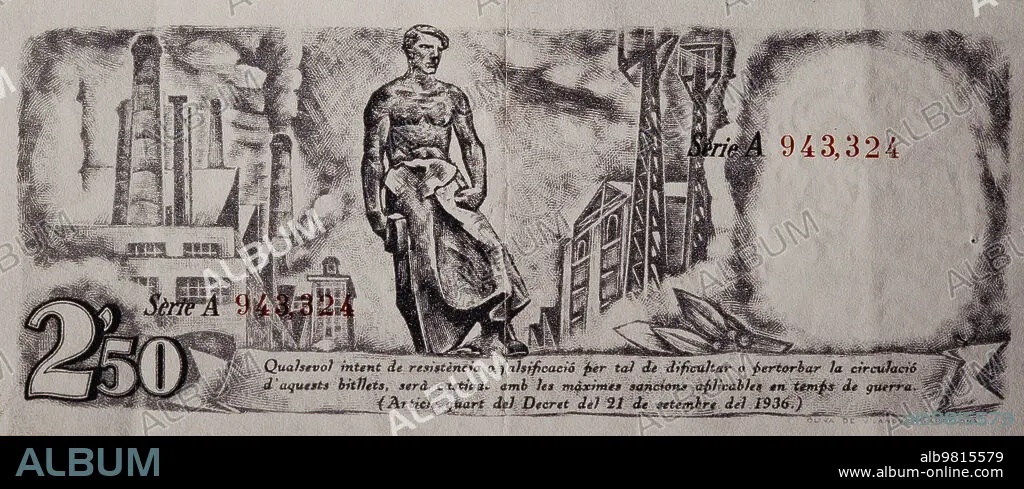 Sèrie A 943,324
Sèrie A 943,324
2'50
Qualsevol intent de resistència o falsificació per tal de dificultar o pertorbar la circulació
d'aquests bitllets, serà castigat amb les màximes sancions aplicables en temps de guerra.
(Article quart del Decret del 21 de setembre del 1936.)
OLIVA DE VILANOVA
ALBUM
alb9815579
www.album-online.com